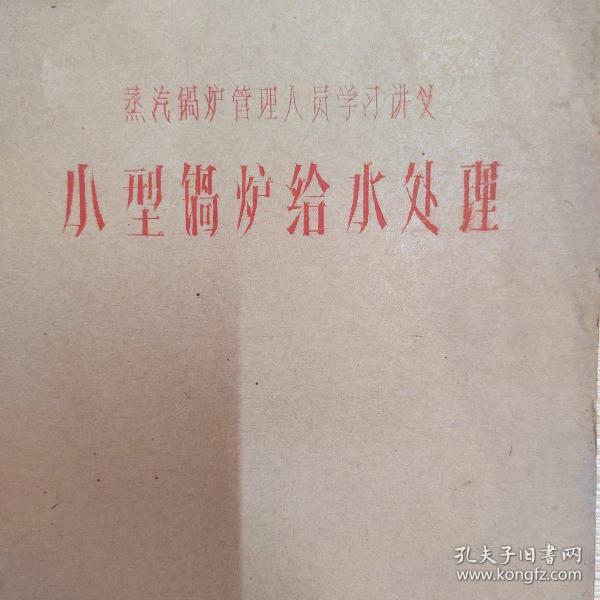 蒸汽锅炉管理人员学习讲义
小型锅炉给水处理
孔夫子旧书网
www.kongfz.com